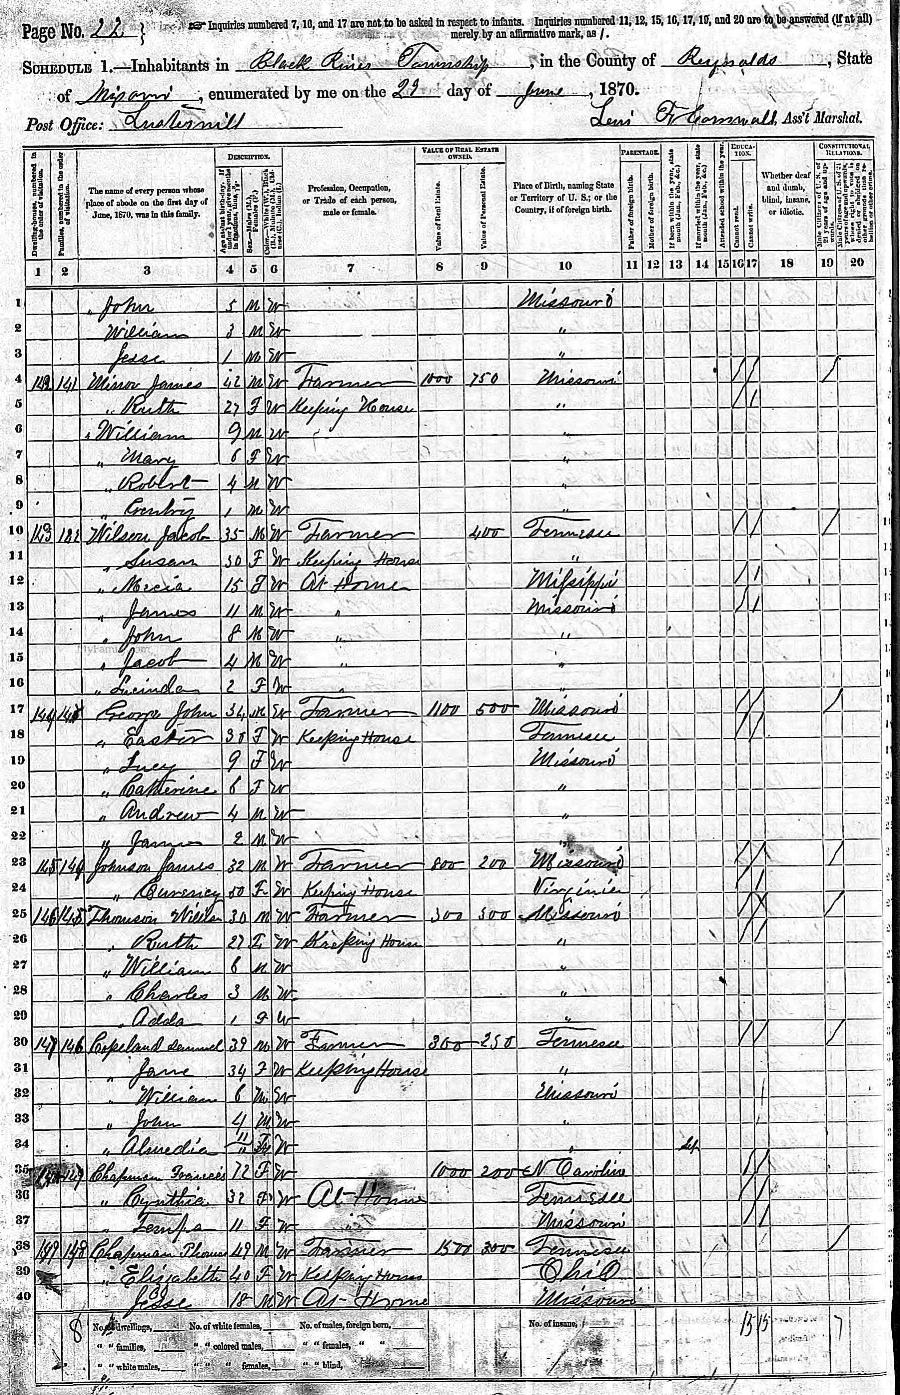 Page No. 22 } ☞ Inquiries numbered 7, 16, and 17 are not to be asked in respect to infants. Inquiries numbered 11, 12, 15, 16, 17, 19, and 20 are to be answered (if at all)
merely by an affirmative mark, as /.
SCHEDULE 1.—Inhabitants in Black River Township, in the County of Reynolds, State
of Missouri, enumerated by me on the day of June, 1870.
Post Office: Ass't Marshal.
DESCRIPTION. VALUE OF REAL ESTATE OWNED. PARENTAGE. EDUCATION. CONSTITUTIONAL RELATIONS.
Dwelling-houses, numbered in the order of visitation.
Families, numbered in the order of visitation.
The name of every person whose place of abode on the first day of June, 1870, was in this family.
Profession, Occupation, or Trade of each person, male or female.
Value of Real Estate.
Value of Personal Estate.
Place of Birth, naming State or Territory of U. S.; or the Country, if of foreign birth.
Father of foreign birth.
Mother of foreign birth.
Attended school within the year.
Cannot read.
Cannot write.
Whether deaf and dumb, blind, insane, or idiotic.
1 2 3 4 5 6 7 8 9 10 11 12 13 14 15 16 17 18 19 20
1 " John 5 M W Missouri
2 William 3 M W "
3 Jesse 1 M W "
4 142 141 Minor James 42 M W Farmer 1000 750 Missouri / / /
5 " Ruth 27 F W Keeping House " / /
6 " William 9 M W "
7 " Mary 6 F W "
8 " Robert 4 M W "
9 " Gentry 1 M W "
10 143 Wilson Jacob 35 M W Farmer 400 Tennesee / / /
11 " Susan 30 F W Keeping House "
12 " 15 F W At Home Missippi / /
13 " James 11 M W " Missouri / /
14 " John 8 M W " "
15 " Jacob 4 M W " "
16 " Lucinda 2 F W " "
17 George John 34 M W Farmer 1100 500 Missouri / / /
18 " Easter 30 F W Keeping House Tennesee / /
19 " Lucy 9 F W Missouri
20 " Catherine 6 F W "
21 " Andrew 4 M W
22 " James 2 M W "
23 145 Johnson James 32 M W Farmer 800 200 Missouri / / /
24 " 50 F W Keeping House Virginia / /
25 146 145 Thomson 30 M W Farmer 300 300 Missouri / / /
26 " Ruth 27 F W Keeping House " / /
27 " William 6 M W "
28 " Charles 3 M W "
29 " Adda 1 F W "
30 147 146 Copeland Samuel 39 M W Farmer 300 250 Tennesee / / /
31 " Jane 34 F W Keeping House "
32 " William 6 M W Missouri /
33 " John 4 M W "
34 " Almedia F W "
35 147 Chapman Francis 72 F W 1000 200 N Caroline / /
36 " Cynthia 32 F W At Home Tennesee / /
37 " Tempa 11 F W Missouri / /
38 149 148 Chapman Thomas 49 M W Farmer 1500 300 Tennesee /
39 " Elizabeth 40 F W Keeping House Ohio
40 Jesse 18 M W At Home Missouri
8 No. of dwellings, No. of white females, No. of males, foreign born, No. of insane, 15 15 7
" " families, " " colored males, " " females, " "
" " white males, " " females, " " blind,
MyFamily.com